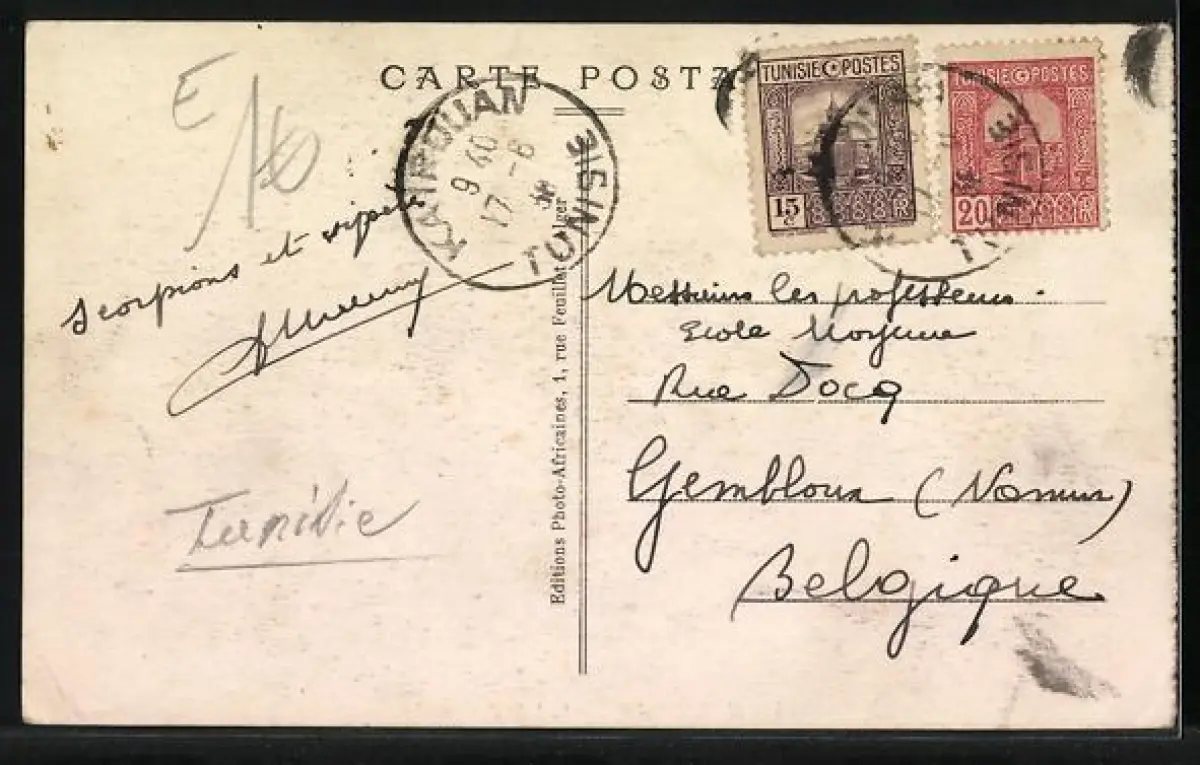 CARTE POSTA
E
KAIROUAN
9 40
17 -6
TUNISIE
TUNISIE POSTES
15 c
RF
TUNISIE POSTES
20 c
RF
TUNISIE
Scorpions et
Messieurs les professeurs.
Ecole Moyenne
Rue Docq
Gembloux (Namur)
Belgique
Tunisie
Editions Photo-Africaines, 1, rue Feuillet Alger